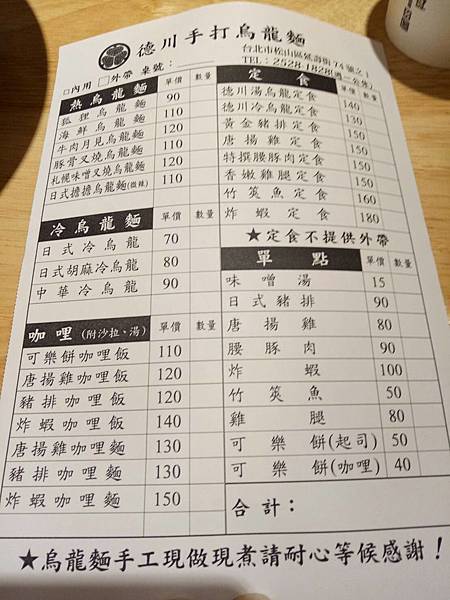 德川手打烏龍麵
台北市松山區延壽街74號之1
TEL：2528-1828(週一公休)
□內用 □外帶 桌號：
熱烏龍麵 單價 數量
狐狸烏龍麵 90
海鮮烏龍麵 110
牛肉月見烏龍麵 120
豚骨叉燒烏龍麵 110
札幌味噌叉燒烏龍麵 120
日式擔擔烏龍麵(微辣) 110
冷烏龍麵 單價 數量
日式冷烏龍 70
日式胡麻冷烏龍 80
中華冷烏龍 90
咖哩(附沙拉、湯) 單價 數量
可樂餅咖哩飯 110
唐揚雞咖哩飯 120
豬排咖哩飯 120
炸蝦咖哩飯 140
唐揚雞咖哩麵 130
豬排咖哩麵 130
炸蝦咖哩麵 150
定食 單價 數量
德川湯烏龍定食 140
德川冷烏龍定食 130
黃金豬排定食 150
唐揚雞定食 150
特撰腰豚肉定食 150
香嫩雞腿定食 150
竹筴魚定食 160
炸蝦定食 180
★定食不提供外帶
單點 單價 數量
味噌湯 15
日式豬排 90
唐揚雞 80
腰豚肉 90
炸蝦 100
竹筴魚 50
雞腿 80
可樂餅(起司) 50
可樂餅(咖哩) 40
合計：
★烏龍麵手工現做現煮請耐心等候感謝！